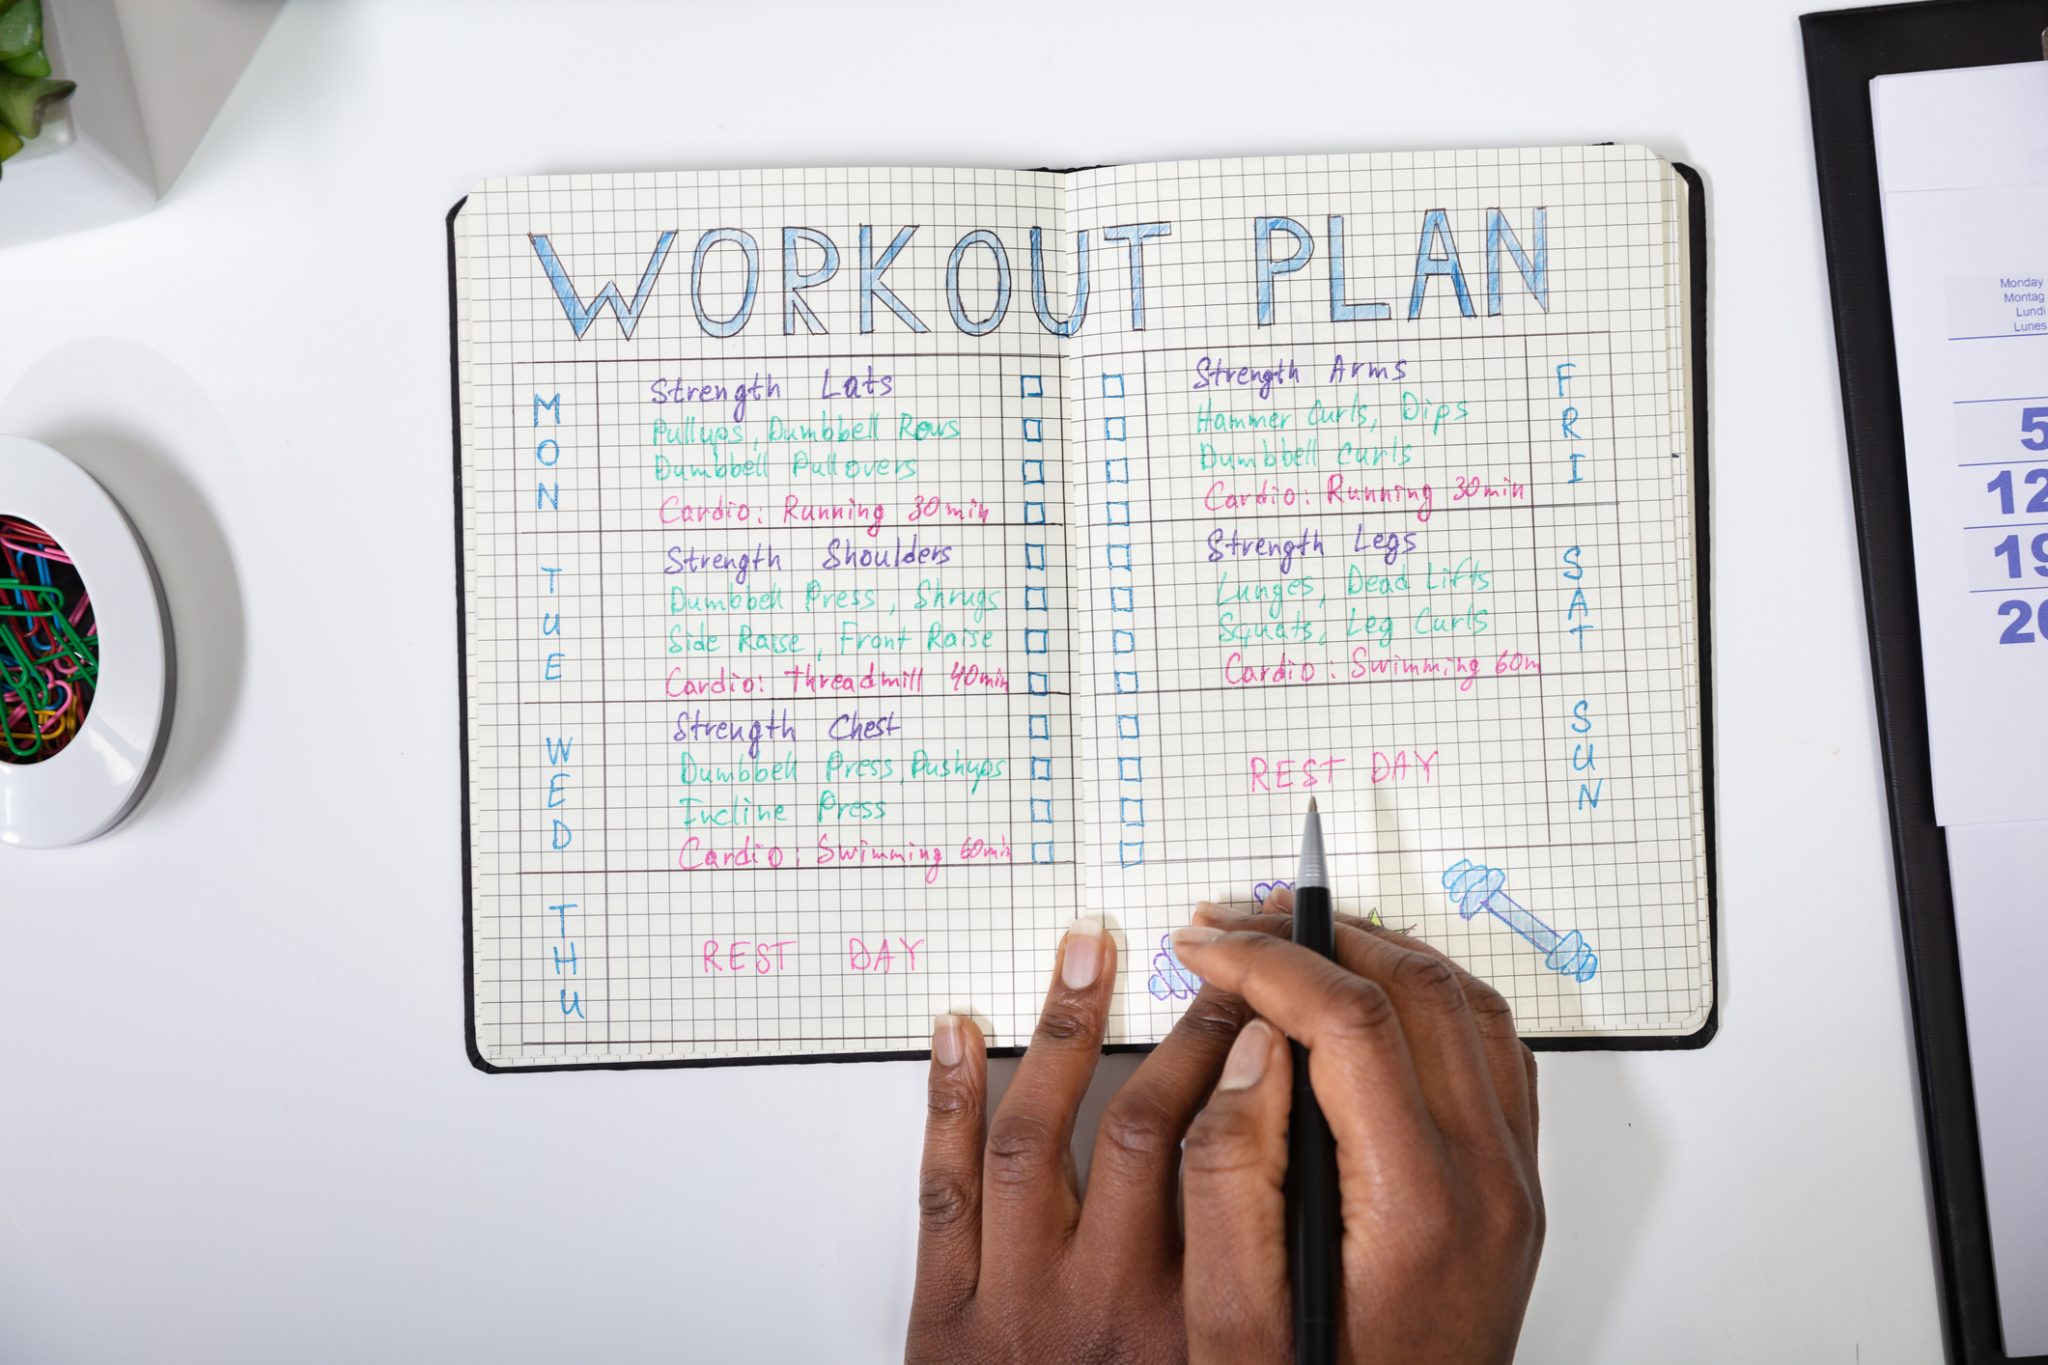 WORKOUT PLAN
MON
Strength Lats
Pullups, Dumbbell Rows
Dumbbell Pullovers
Cardio: Running 30min
TUE
Strength Shoulders
Dumbbell Press, Shrugs
Side Raise, Front Raise
Cardio: threadmill 40min
WED
Strength Chest
Dumbbell Press, Pushyps
Incline Press
Cardio: Swimming 60min
THU
REST DAY
Strength Arms
Hammer Curls, Dips
Dumbbell Curls
Cardio: Running 30min
FRI
Strength Legs
Lunges, Dead Lifts
Squats, Leg Curls
Cardio: Swimming 60m
SAT
REST DAY
SUN
Monday
Montag
Lundi
Lunes
5
12
19